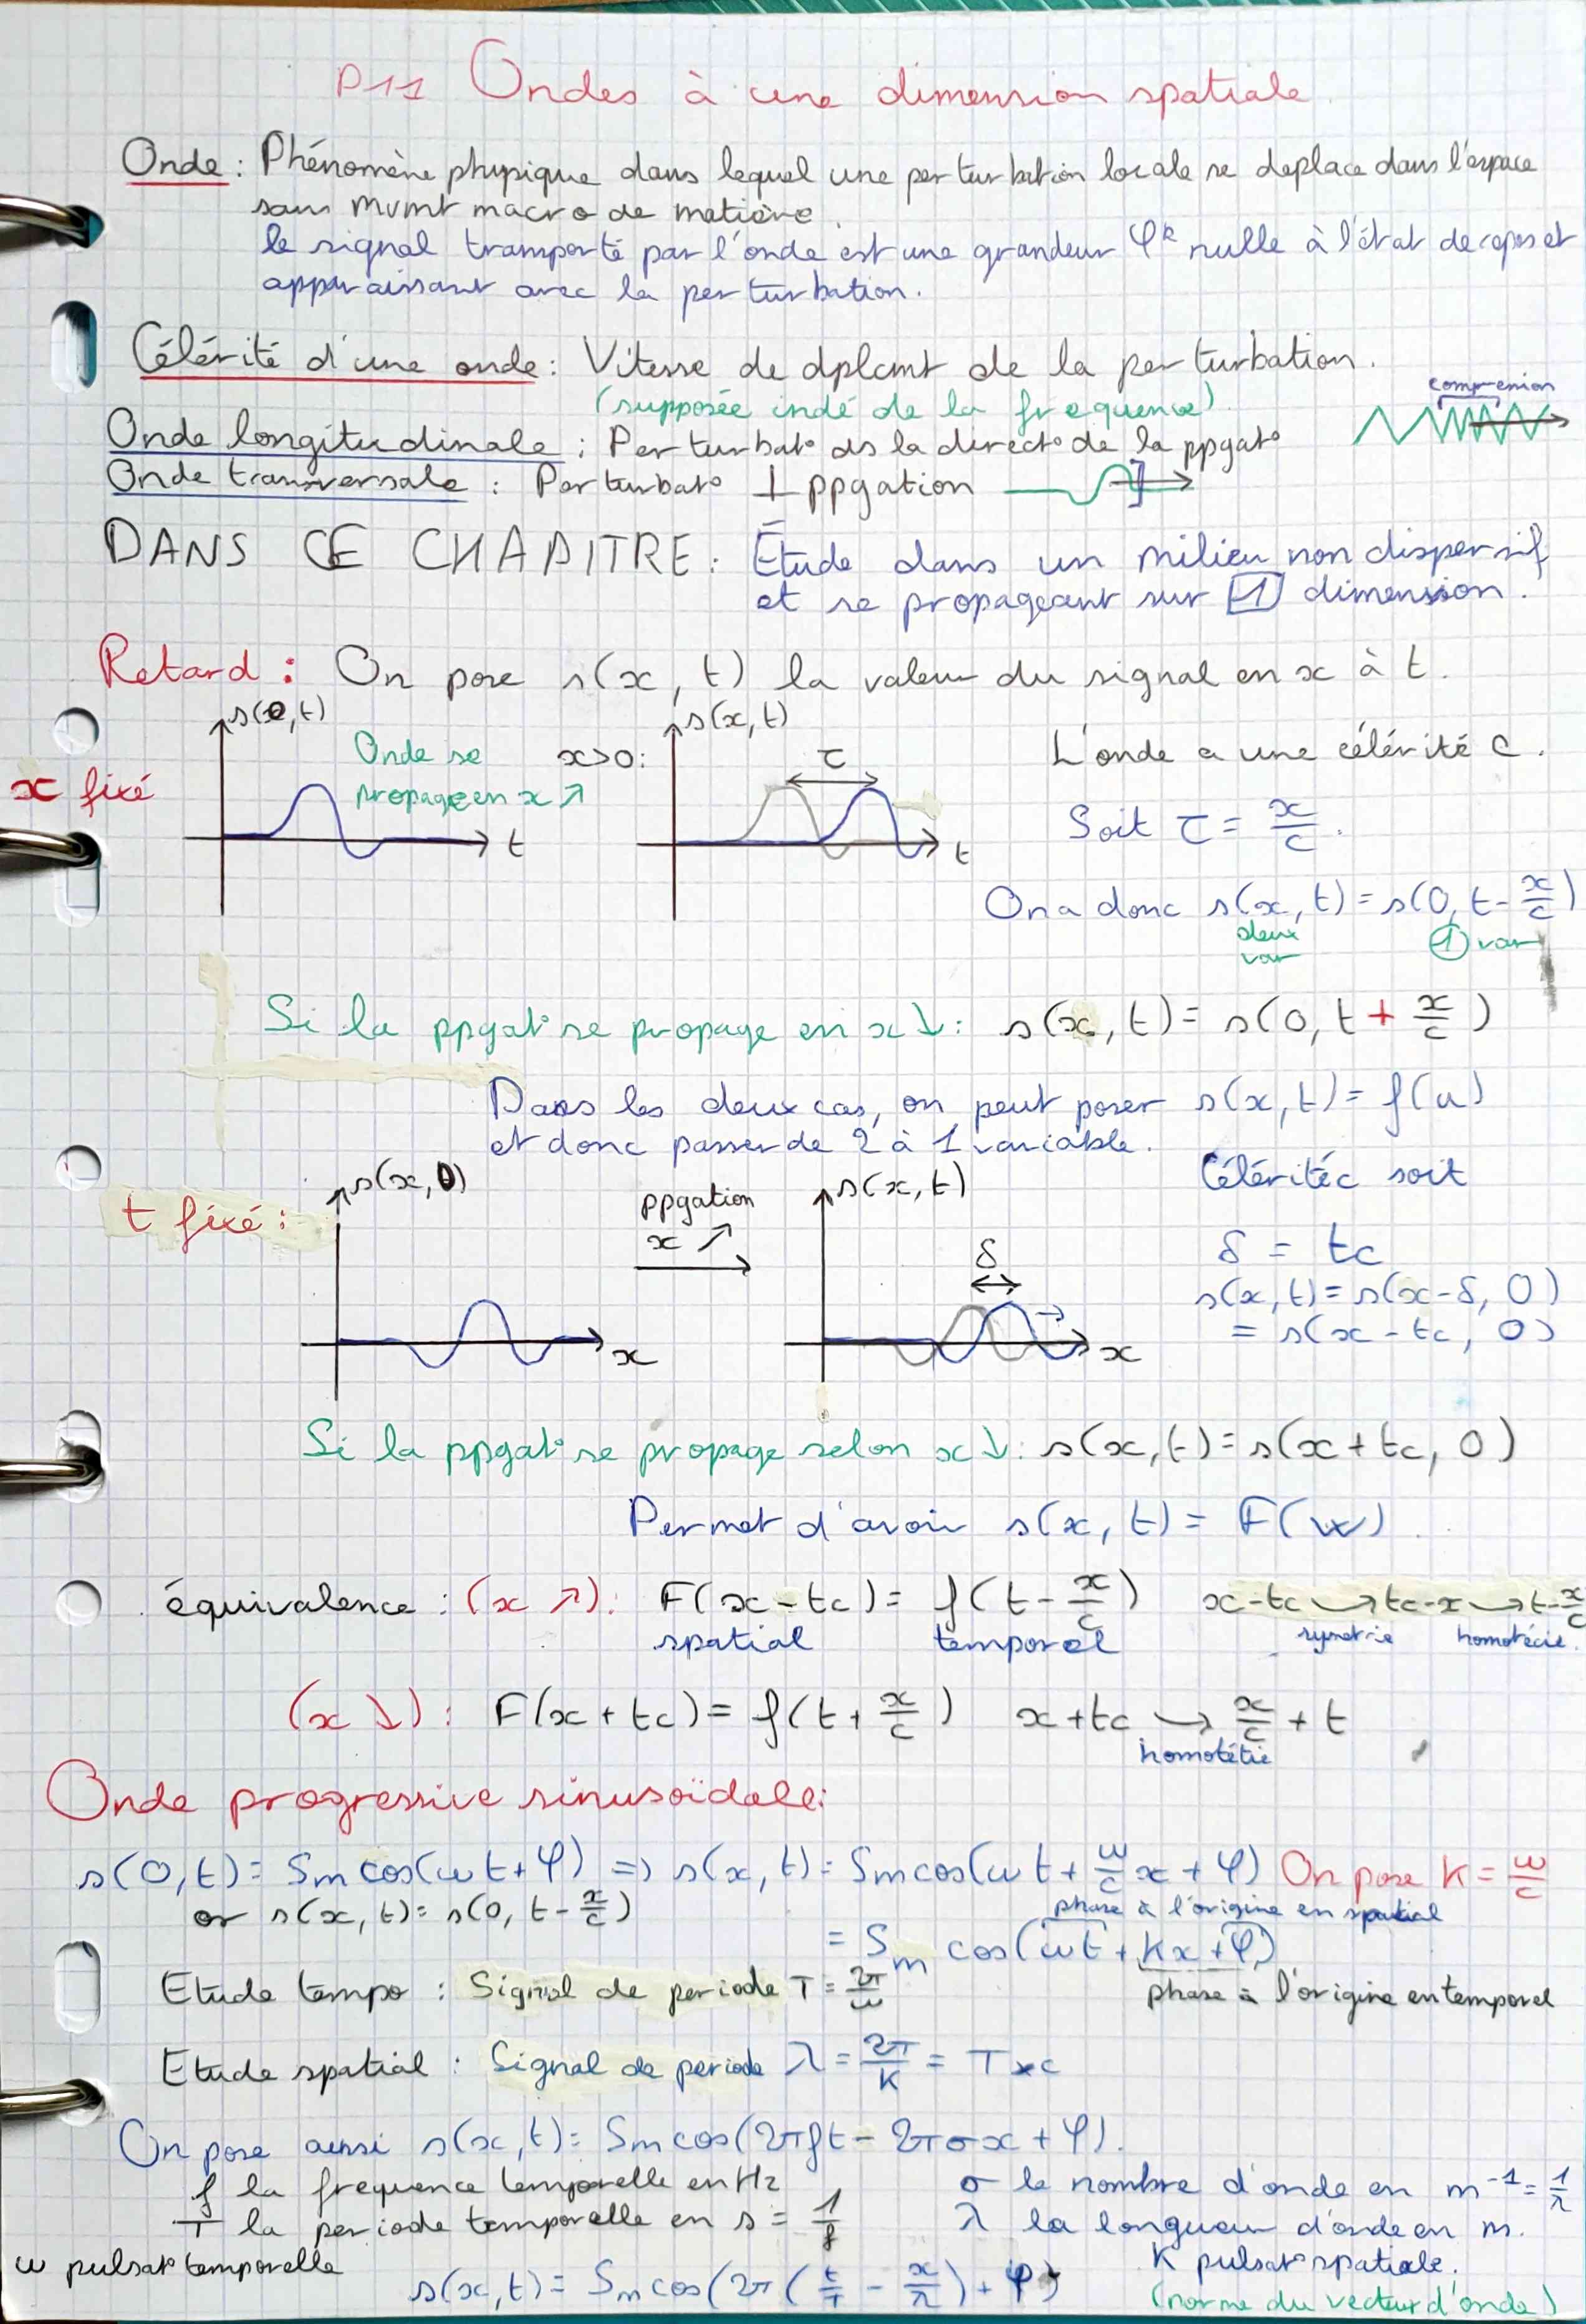 P11 Ondes à une dimension spatiale
Onde : Phénomène physique dans lequel une perturbation locale se deplace dans l'espace
sans mvmt macro de matière.
le signal transporté par l'onde est une grandeur φk nulle à l'état de repos et
apparaissant avec la perturbation.
Célérité d'une onde : Vitesse de dplcmt de la perturbation.
(supposée indé de la frequence)
compression
Onde longitudinale : Perturbat° ds la direct° de la ppgat°
Onde transversale : Perturbat° ⊥ ppgation
DANS CE CHAPITRE : Étude dans un milieu non dispersif
et se propageant sur 1 dimension.
Retard : On pose s(x, t) la valeur du signal en x à t.
x fixé
s(0,t)
t
Onde se
propage en x ↗
x>0:
s(x,t)
τ
t
L'onde a une célérité c.
Soit τ = x/c.
On a donc s(x, t) = s(0, t - x/c)
deux
var
1 var
Si la ppgat° se propage en x ↓ : s(x, t) = s(0, t + x/c)
Dans les deux cas, on peut poser s(x, t) = f(u)
et donc passer de 2 à 1 variable.
t fixé :
s(x,0)
x
ppgation
x ↗
s(x,t)
δ
x
Célérité c soit
δ = tc
s(x,t) = s(x-δ, 0)
= s(x - tc, 0)
Si la ppgat° se propage selon x ↓ : s(x, t) = s(x + tc, 0)
Permet d'avoir s(x, t) = F(w).
équivalence : (x ↗) : F(x - tc) = f(t - x/c) x-tc → tc-x → t-x/c
spatial temporel symetrie homotécie.
(x ↓) : F(x + tc) = f(t + x/c) x + tc → x/c + t
homotétie
Onde progressive sinusoïdale :
s(0,t) = Sm cos(ωt + φ) => s(x,t) = Sm cos(ωt + ω/c x + φ) On pose K = ω/c
or s(x,t) = s(0, t - x/c)
phase à l'origine en spatial
= Sm cos(ωt + Kx + φ)
phase à l'origine en temporel
Etude tempo : Signal de periode T = 2π/ω
Etude spatial : Signal de periode λ = 2π/K = T×c
On pose aussi s(x,t) = Sm cos(2πft - 2πσx + φ).
f la frequence temporelle en Hz
T la periode temporelle en s = 1/f
ω pulsat° temporelle
σ le nombre d'onde en m⁻¹ = 1/λ
λ la longueur d'onde en m.
K pulsat° spatiale.
(norme du vecteur d'onde)
s(x,t) = Sm cos(2π(t/T - x/λ) + φ)